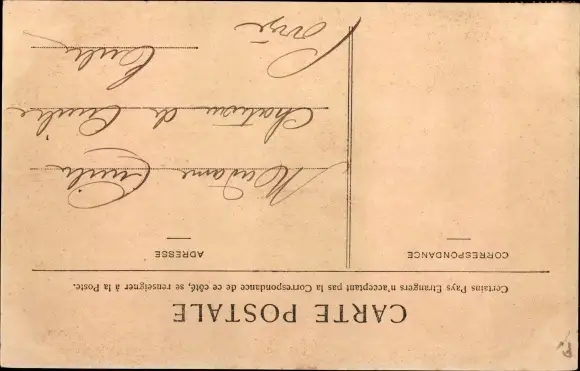 CARTE POSTALE
Certains Pays Etrangers n'acceptant pas la Correspondance de ce côté, se renseigner à la Poste.
CORRESPONDANCE
ADRESSE
Madame
Chateau de